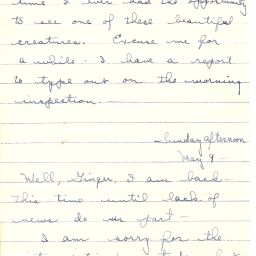 time I ever had the opportunity
to see one of these beautiful
creatures. Excuse me for
a while. I have a report
to type out on the morning
inspection. —
—Sunday afternoon
May 9 —
Well, Ginger, I am back —
this time until lack of
news do us part —
I am sorry for the